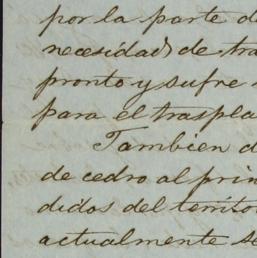 por la parte de
necesidad de tra
pronto y sufre
para el traspla
Tambien d
de cedro al prin
didos del territo
actualmente se